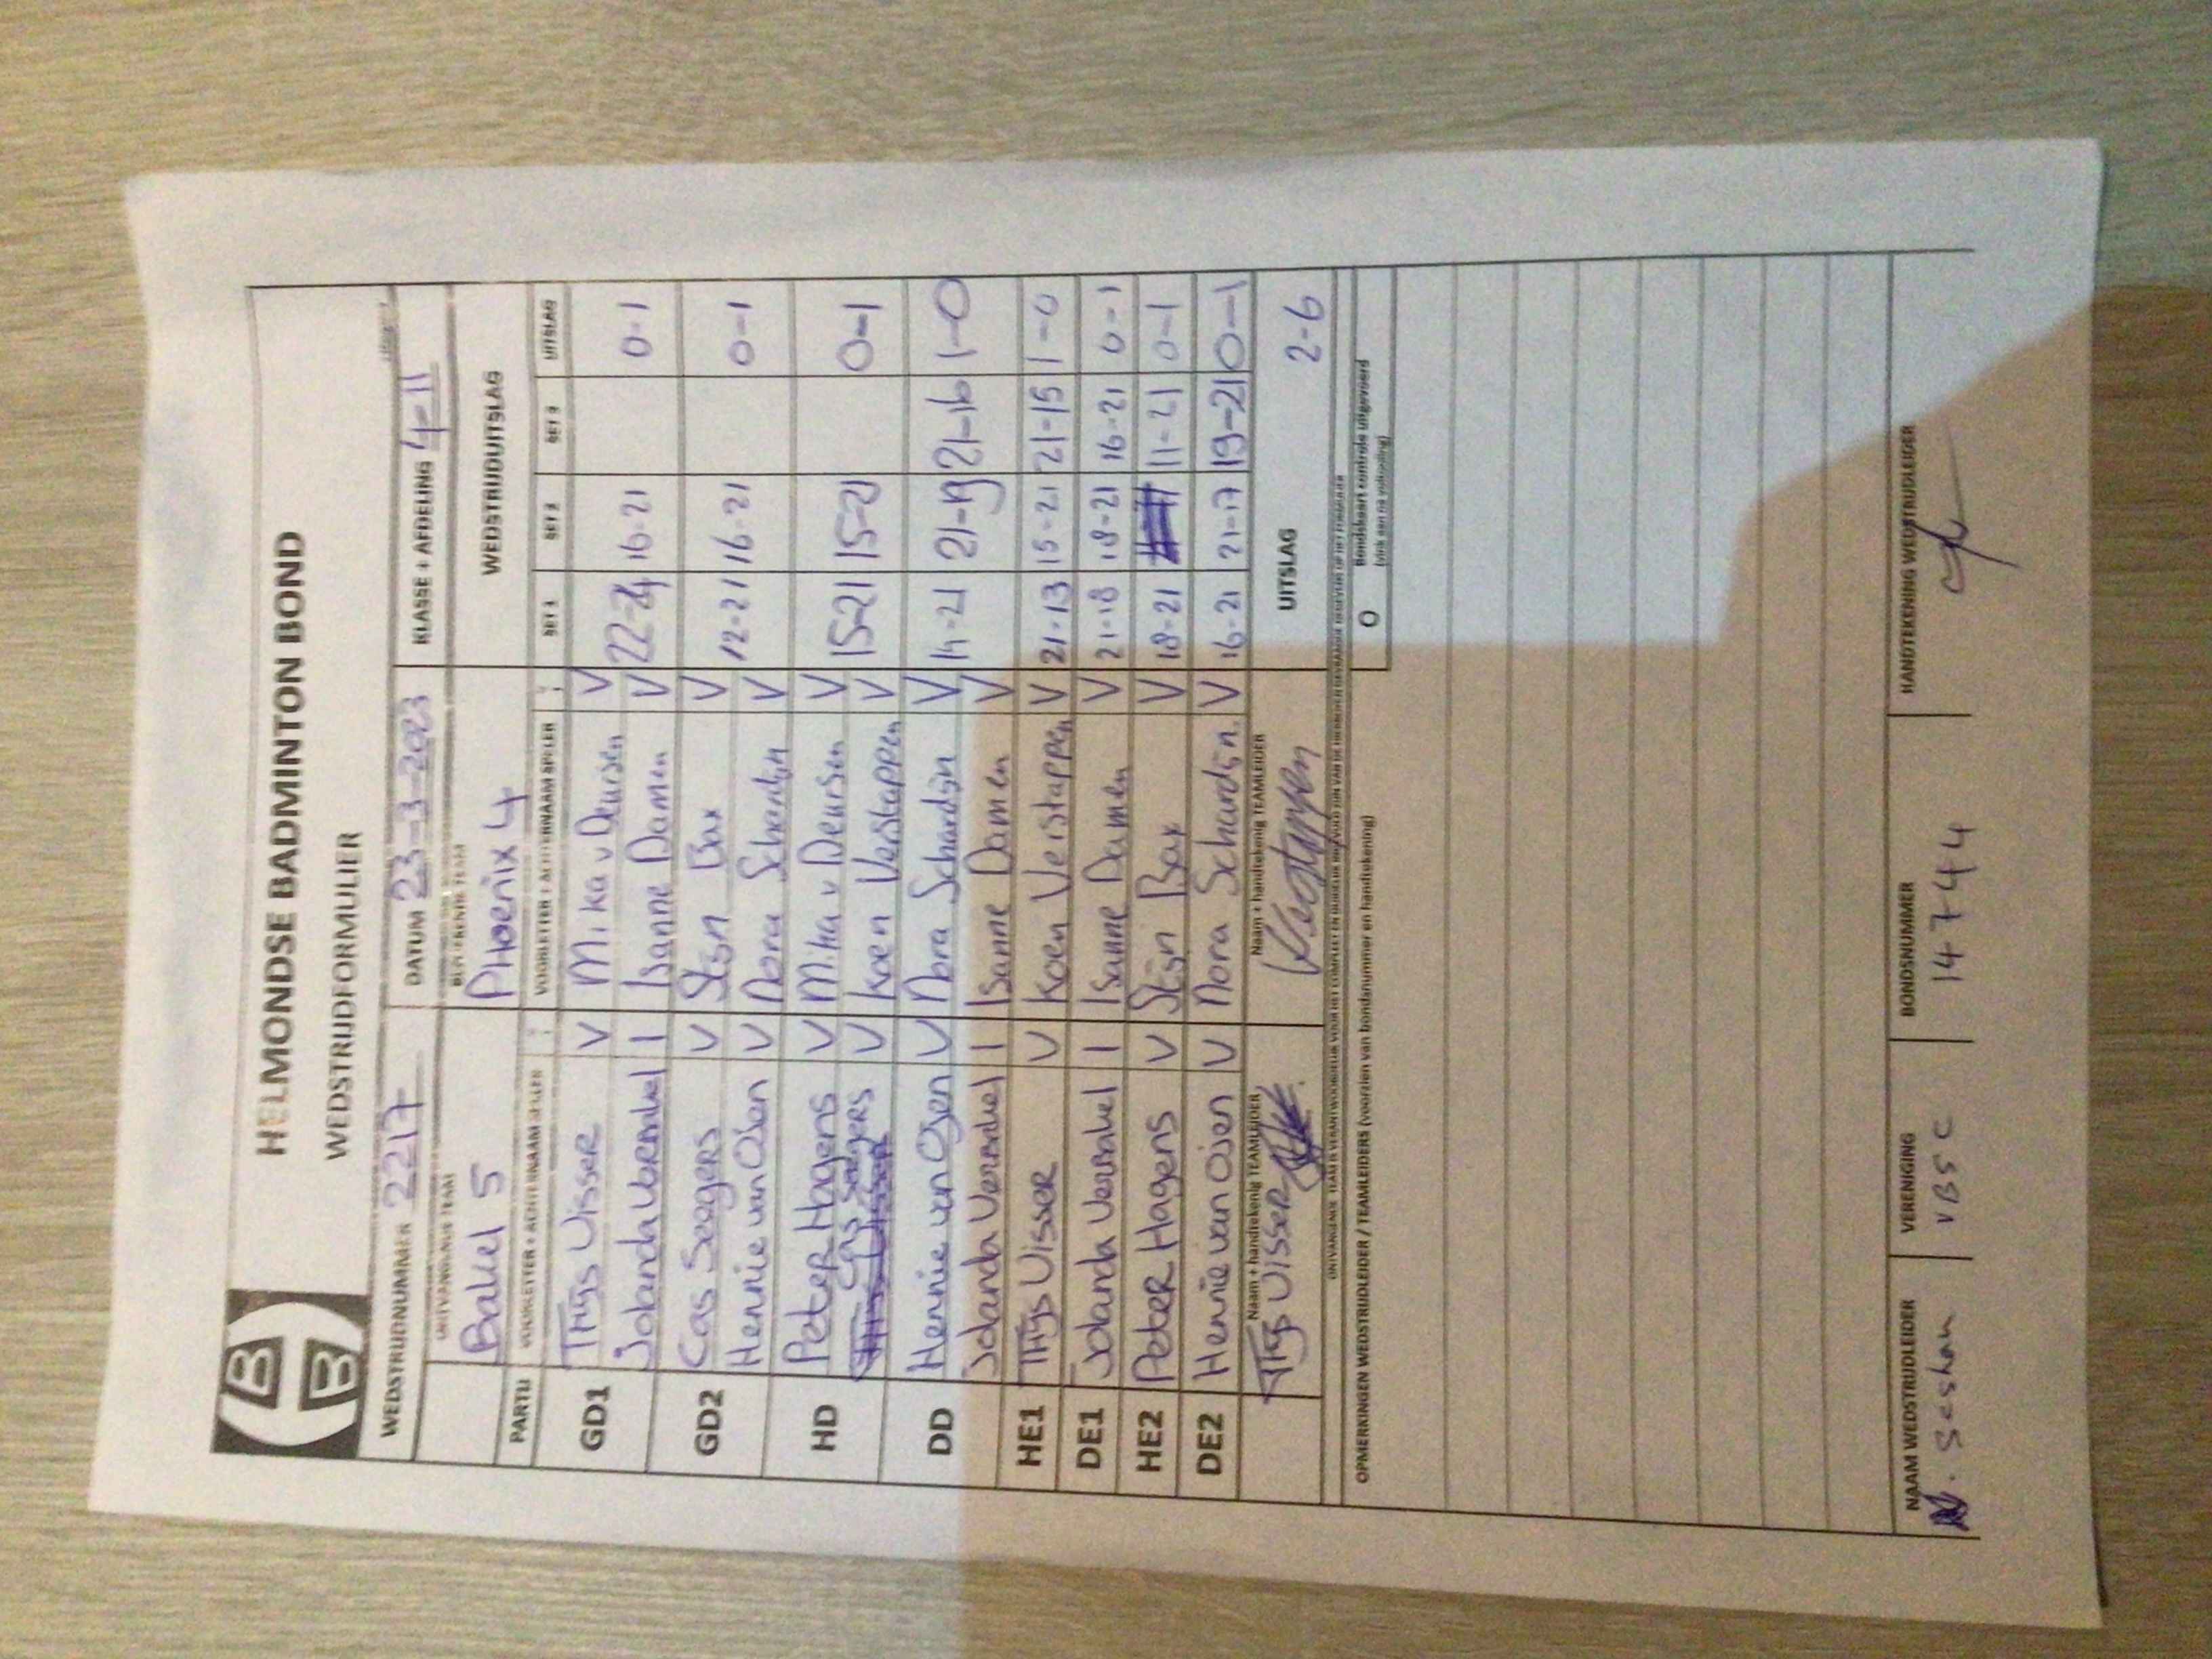 HELMONDSE BADMINTON BOND
WEDSTRIJDFORMULIER
WEDSTRIJDNUMMER 2217 DATUM 23-3-2023 KLASSE + AFDELING 4-11
ONTVANGENDE TEAM BEZOEKENDE TEAM WEDSTRIJDUITSLAG
Bakel 5 Phoenix 4
PARTIJ VOORLETTER + ACHTERNAAM SPELER VOORLETTER + ACHTERNAAM SPELER SET 1 SET 2 SET 3 UITSLAG
GD1 Thijs Visser V Mika v Deursen V 22-24 16-21 0-1
Jolanda Vereskel I Isanne Damen V
GD2 Cas Seegers V Stijn Bax V 12-21 16-21 0-1
Hennie van Osen V Nora Schardijn V
HD Peter Hagens V Mika v Deursen V 15-21 15-21 0-1
Cas Seegers V Koen Verstappen V
DD Hennie van Osen V Nora Schardijn V 14-21 21-19 21-16 1-0
Jolanda Vereskel I Isanne Damen V
HE1 Thijs Visser V Koen Verstappen V 21-13 15-21 21-15 1-0
DE1 Jolanda Vereskel I Isanne Damen V 21-18 18-21 16-21 0-1
HE2 Peter Hagens V Stijn Bax V 18-21 11-21 0-1
DE2 Hennie van Osen V Nora Schardijn V 16-21 21-17 19-21 0-1
Naam + handtekenig TEAMLEIDER Naam + handtekenig TEAMLEIDER UITSLAG 2-6
Thijs Visser Verstappen
O Bondskaart controle uitgevoerd
OPMERKINGEN WEDSTRIJDLEIDER / TEAMLEIDERS (voorzien van bondsnummer en handtekening)
NAAM WEDSTRIJDLEIDER VERENIGING BONDSNUMMER HANDTEKENING WEDSTRIJDLEIDER
Seshan VBSC 14744